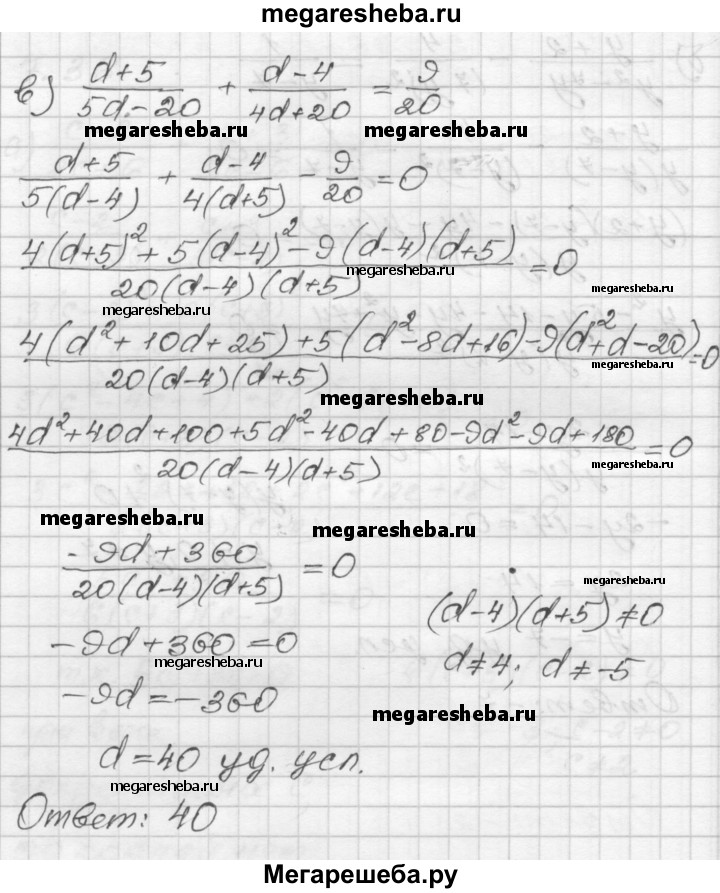 megaresheba.ru
в) (d+5)/(5d-20) + (d-4)/(4d+20) = 9/20
megaresheba.ru megaresheba.ru
(d+5)/(5(d-4)) + (d-4)/(4(d+5)) - 9/20 = 0
(4(d+5)²+5(d-4)²-9(d-4)(d+5))/(20(d-4)(d+5)) = 0
megaresheba.ru megaresheba.ru
megaresheba.ru
(4(d²+10d+25)+5(d²-8d+16)-9(d²+d-20))/(20(d-4)(d+5)) = 0
megaresheba.ru
megaresheba.ru
(4d²+40d+100+5d²-40d+80-9d²-9d+180)/(20(d-4)(d+5)) = 0
megaresheba.ru
megaresheba.ru megaresheba.ru
(-9d+360)/(20(d-4)(d+5)) = 0
megaresheba.ru
(d-4)(d+5)≠0
-9d+360=0
megaresheba.ru
d≠4; d≠-5
-9d=-360
megaresheba.ru
d=40 уд. усл.
megaresheba.ru
Ответ: 40
Мегарешеба.ру